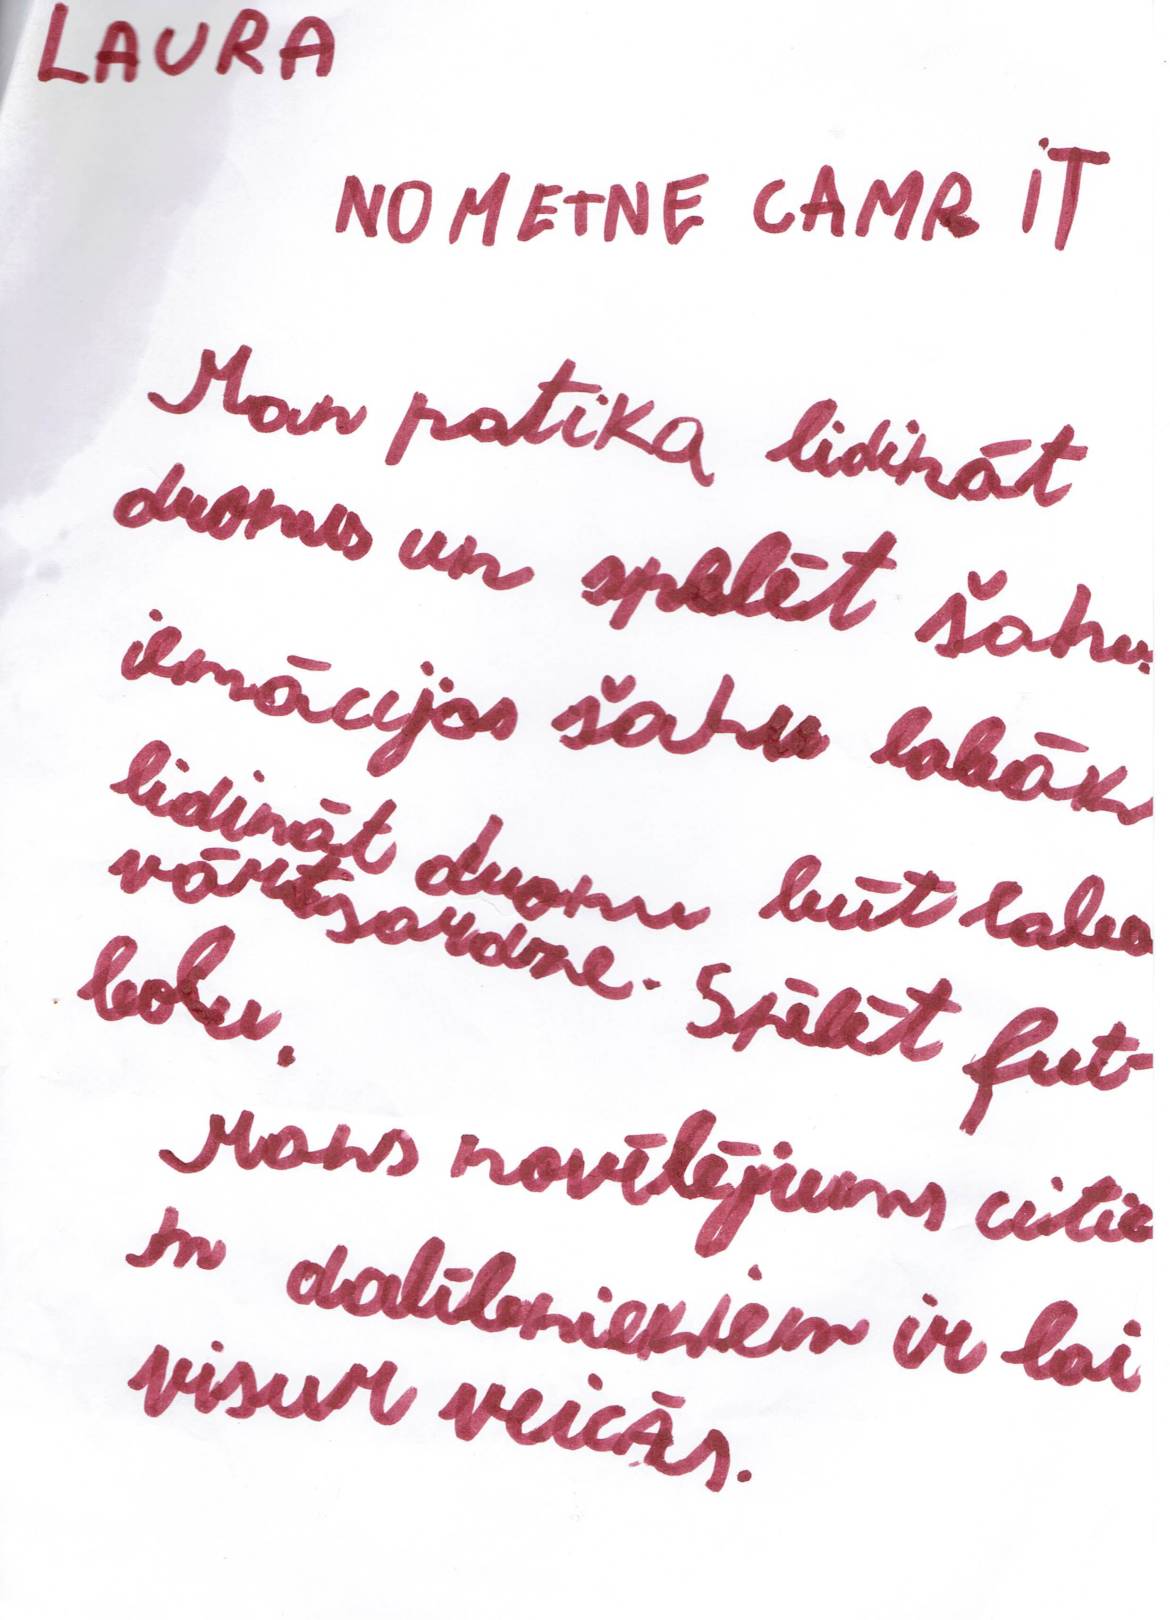 LAURA
NOMETNE CAMP IT
Man patika lidināt
dronus un spēlēt šahu.
iemācijos šahu labāk,
lidināt dronu būt laba
vārtsardze. Spēlēt fut-
bolu.
Mans novēlējums citie
m dalībniekiem ir lai
visur veicās.